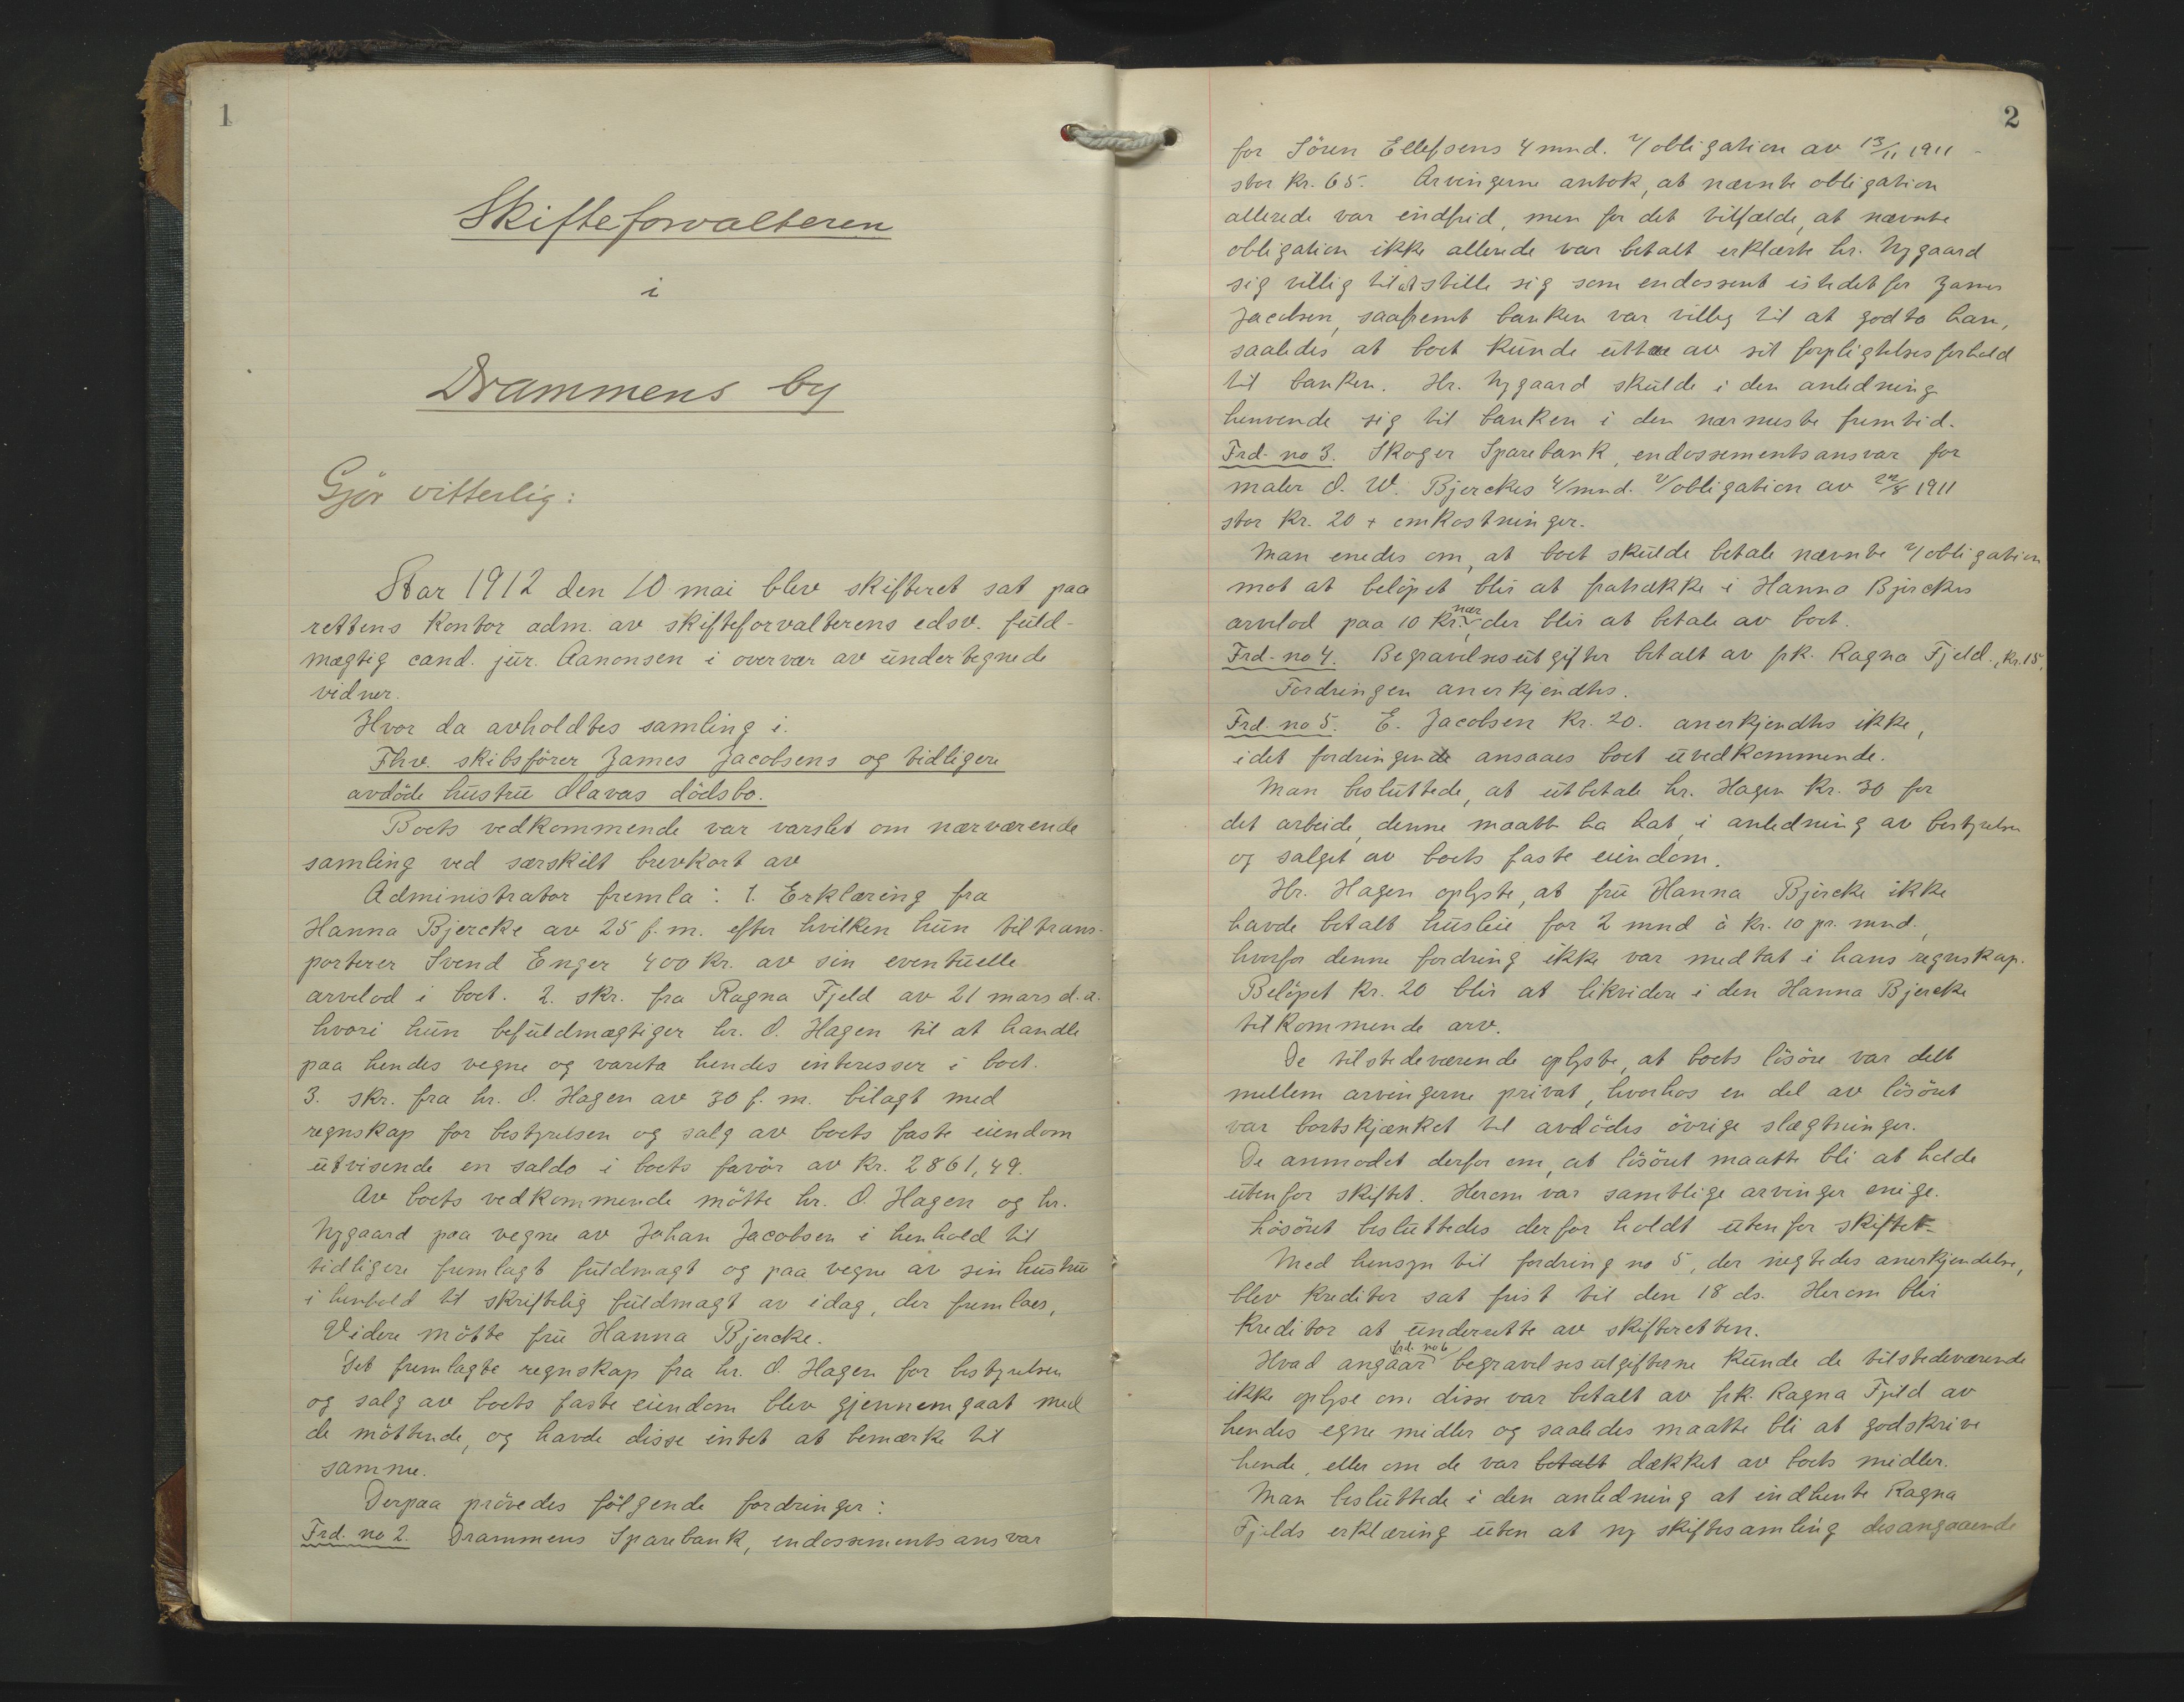 1
Skifteforvalteren
i
Drammens by
Gjör vitterlig:
Aar 1912 den 10 mai blev skifteret sat paa
rettens kontor adm. av skifteforvalterens edsv. fuld-
mægtig cand. jur. Aanonsen i overvær av undertegnede
vidner.
Hvor da avholdtes samling i.
Fhv. skibsförer James Jacobsens og tidligere
avdöde hustru Olavas dödsbo.
Boets vedkommende var varslet om nærværende
samling ved særskilt brevkort av
Administrator fremla: 1. Erklæring fra
Hanna Bjercke av 25 f.m. efter hvilken hun til trans-
porterer Svend Enger 400 kr. av sin eventuelle
arvelod i boet. 2. skr. fra Ragna Fjeld av 21 mars d.a.
hvori hun befuldmægtiger hr. O. Hagen til at handle
paa hendes vegne og vareta hendes interesser i boet.
3. skr. fra hr. O. Hagen av 30 f.m. bilagt med
regnskap for bestyrelsen og salg av boets faste eiendom
utvisende en saldo i boets favör av kr. 2861,49.
Av boets vedkommende mötte hr. O. Hagen og hr.
Nygaard paa vegne av Johan Jacobsen i henhold til
tidligere fremlagt fuldmagt og paa vegne av sin hustru
i henhold til skriftelig fuldmagt av idag, der fremlaes,
Videre mötte fru Hanna Bjercke.
Det fremlagte regnskap fra hr. O. Hagen for bestyrelsen
og salg av boets faste eiendom blev gjennemgaat med
de möttende, og havde disse intet at bemærke til
samme.
Derpaa prövedes fölgende fordringer:
Frd. no 2. Drammens Sparebank, endossementsansvar
2
for Sören Ellefsens 4 mnd. v/obligation av 13/11 1911 -
stor kr. 65. Arvingerne antok, at nævnte obligation
allerede var indfrid, men for det tilfælde, at nævnte
obligation ikke allerede var betalt erklærte hr. Nygaard
sig villig til at stille sig som endossent istedetfor James
Jacobsen, saafremt banken var villig til at godta ham,
saaledes at boet kunde uttræ av sit forpligtelsesforhold
til banken. Hr. Nygaard skulde i den anledning
henvende sig til banken i den nærmeste fremtid.
Frd. no 3. Skoger Sparebank, endossementsansvar for
maler O. W. Bjerckes 4/mnd. v/obligation av 22/8 1911
stor kr. 20 + omkostninger.
Man enedes om, at boet skulde betale nævnte v/obligation
mot at belöpet blir at fratrække i Hanna Bjerckes
arvelod paa 10 kr. nær, der blir at betale av boet.
Frd. no 4. Begravelsesutgifter betalt av frk. Ragna Fjeld, kr. 15,
Fordringen anerkjendtes.
Frd. no 5. E. Jacobsen kr. 20. anerkjendtes ikke,
idet fordringen ansaaes boet uvedkommende.
Man besluttede, at utbetale hr. Hagen kr. 30 for
det arbeide, denne maatte ha hat, i anledning av bestyrelsen
og salget av boets faste eiendom.
Hr. Hagen oplyste, at fru Hanna Bjercke ikke
havde betalt husleie for 2 mnd à kr. 10 pr. mnd.,
hvorfor denne fordring ikke var medtat i hans regnskap.
Belöpet kr. 20 blir at likvidere i den Hanna Bjercke
tilkommende arv.
De tilstedeværende oplyste, at boets lösöre var delt
mellem arvingerne privat, hvorhos en del av lösöret
var bortskjænket til avdödes övrige slægtninger.
De anmodet derfor om, at lösöret maatte bli at holde
utenfor skiftet. Herom var samtlige arvinger enige.
Lösöret besluttedes derfor holdt utenfor skiftet.
Med hensyn til fordring no 5, der negtedes anerkjendelse,
blev kreditor sat frist til den 18 ds. Herom blir
kreditor at underrette av skifteretten.
Hvad angaar frd. no 6 begravelsesutgifterne kunde de tilstedeværende
ikke oplyse om disse var betalt av frk. Ragna Fjeld av
hendes egne midler og saaledes maatte bli at godskrive
hende, eller om de var betalt dækket av boets midler.
Man besluttede i den anledning at indhente Ragna
Fjelds erklæring uten at ny skiftesamling desangaaende